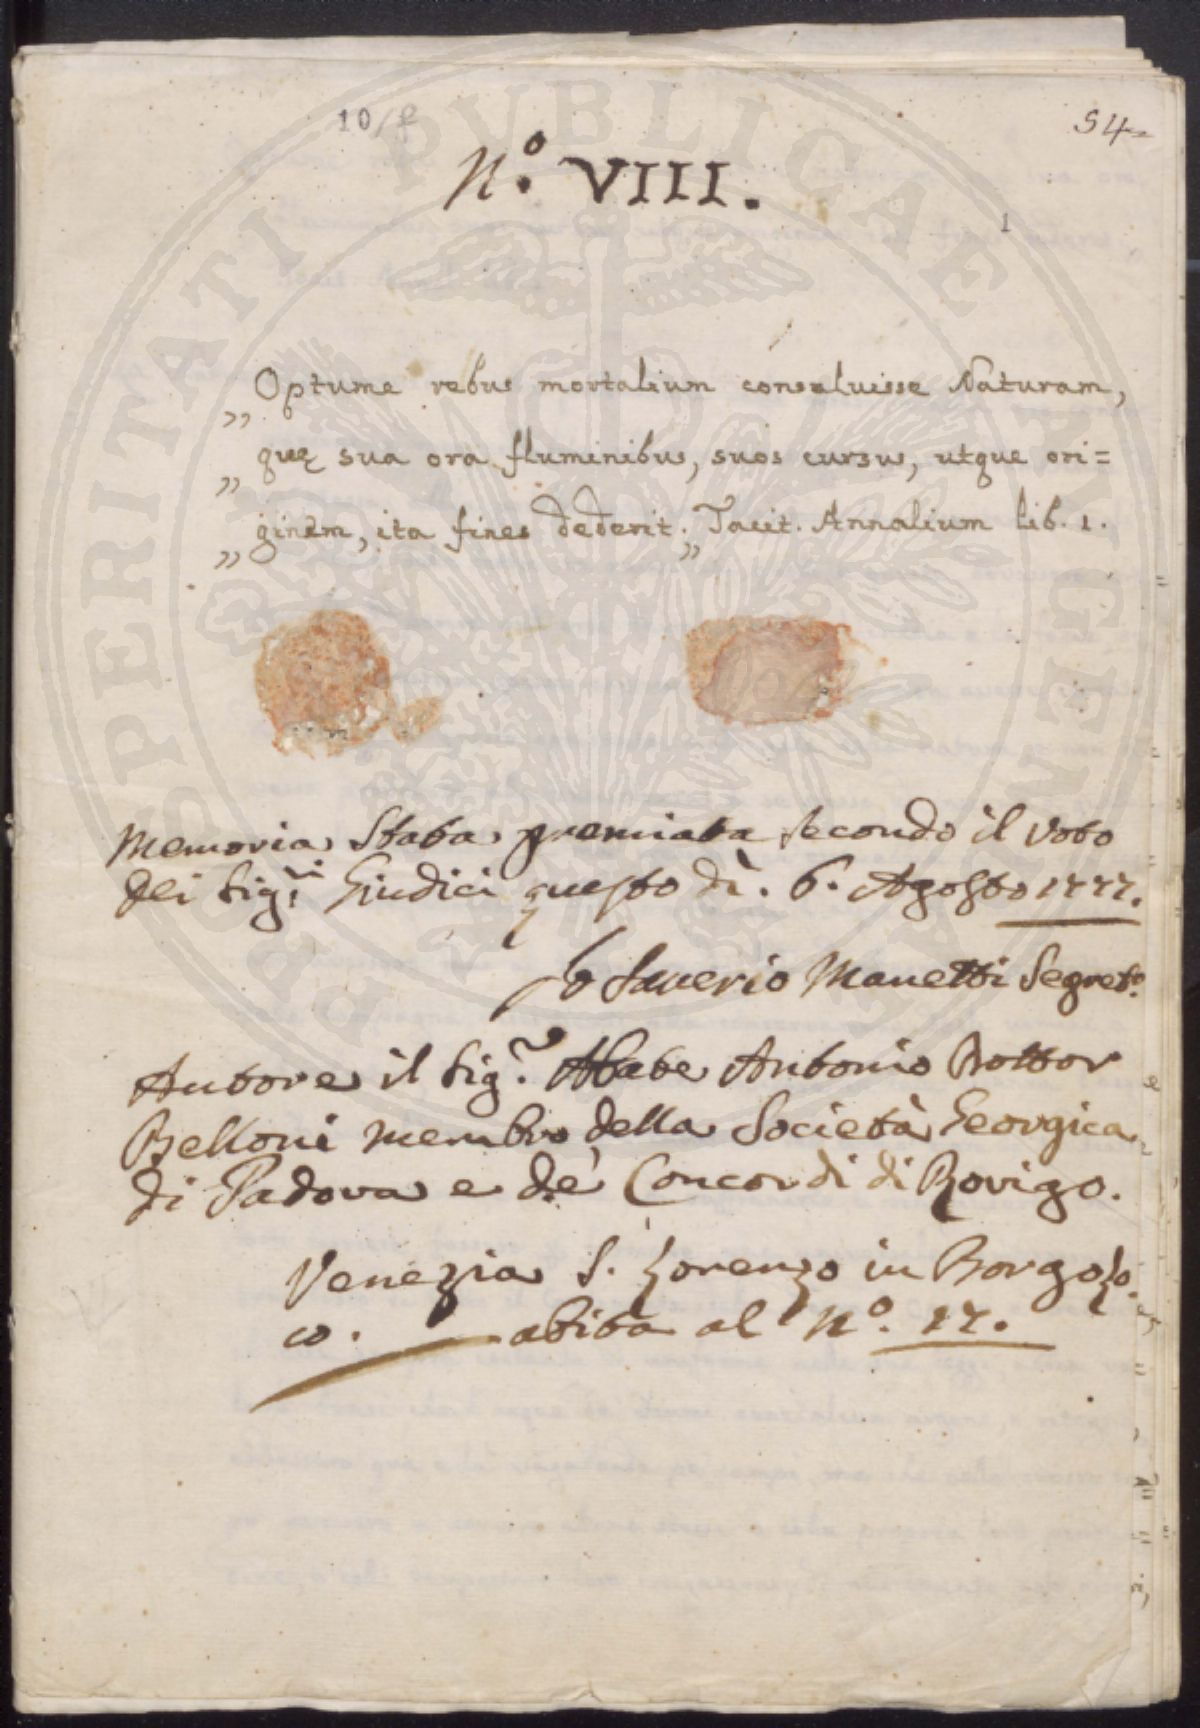 10/8
54
N.º VIII.
1
Optume rebus mortalium consuluisse Naturam,
„ quę sua ora fluminibus, suos cursus, utque ori=
„ ginem, ita fines dederit. „ Tacit. Annalium lib. 1.
„
Memoria Stata premiata secondo il voto
dei Sig.ri Giudici questo dì. 6. Agosto 1777.
Io Saverio Manetti Segret.º
Autore il Sig.r Abate Antonio Dottor
Belloni membro della Società Georgica
di Padova e de' Concordi di Rovigo.
Venezia S. Lorenzo in Borgolo.
co. abita al Nº. 17.
PROSPERITATI PUBLICAE AUGENDAE